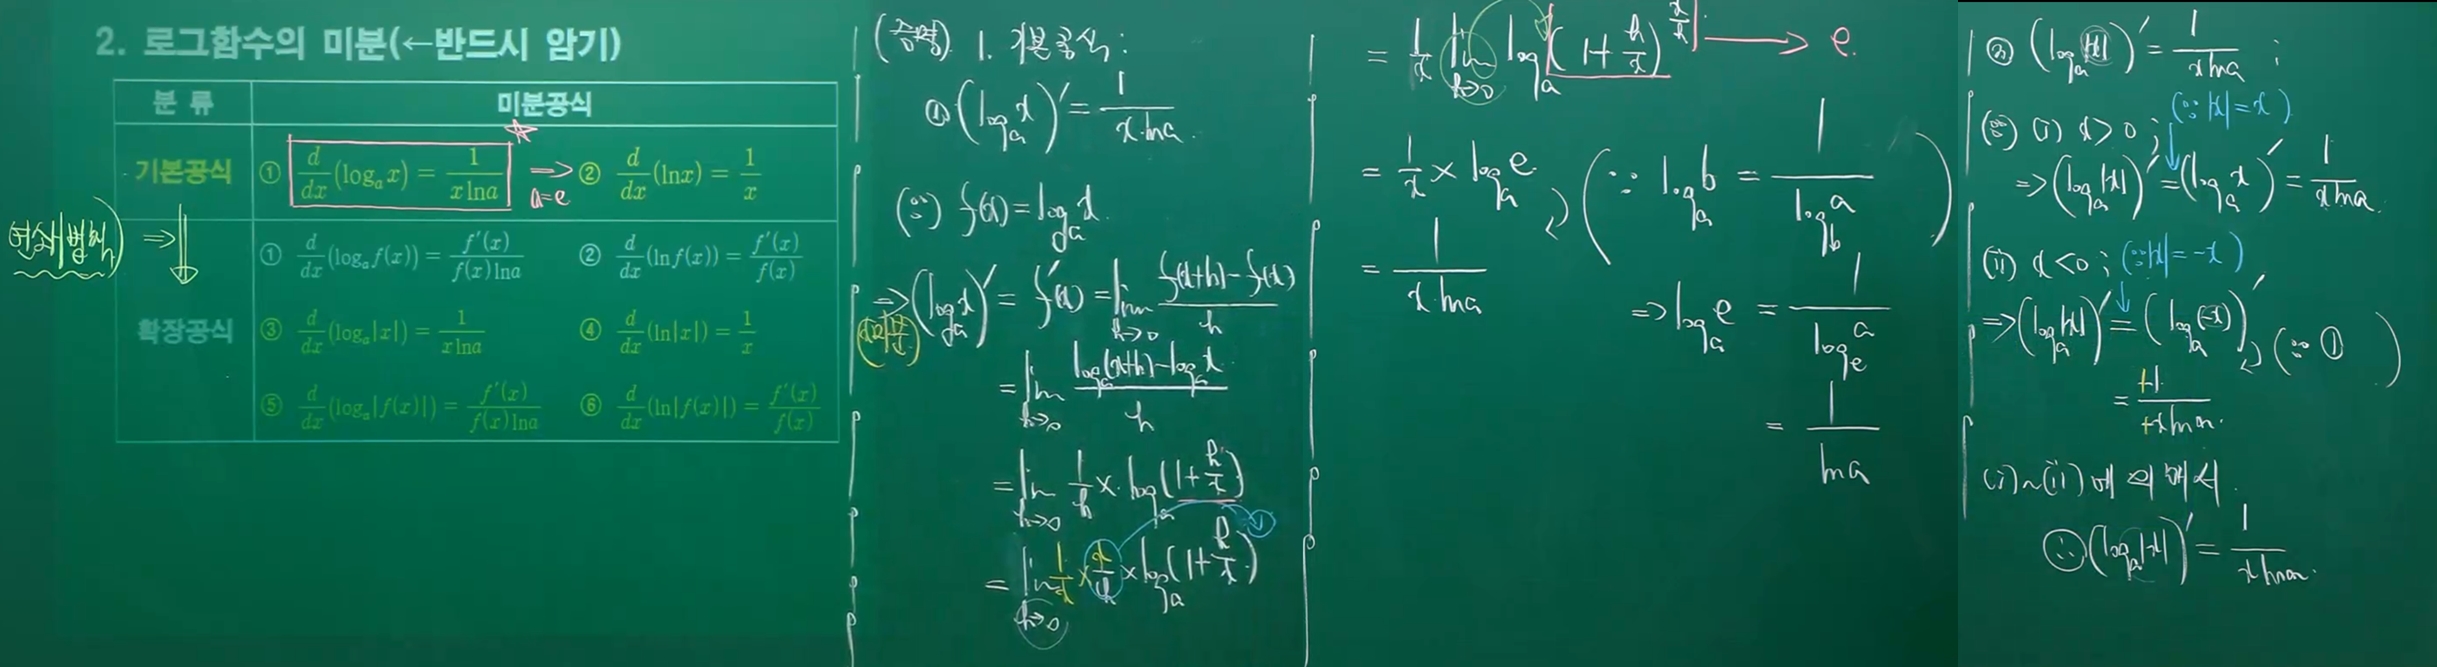 2. 로그함수의 미분(←반드시 암기)
분 류 미분공식
기본공식 ① d/dx (logₐx) = 1/(x lna) ⇒ a=e ② d/dx (lnx) = 1/x
⇒
확장공식
① d/dx (logₐf(x)) = f'(x)/(f(x) lna) ② d/dx (lnf(x)) = f'(x)/f(x)
③ d/dx (logₐ|x|) = 1/(x lna) ④ d/dx (ln|x|) = 1/x
⑤ d/dx (logₐ|f(x)|) = f'(x)/(f(x) lna) ⑥ d/dx (ln|f(x)|) = f'(x)/f(x)
(증명). 1. 기본공식:
① (logₐx)' = 1/(x·lna)
(∵) f(x) = logₐx.
⇒ (logₐx)' = f'(x) = lim h→0 (f(x+h)-f(x))/h
= lim h→0 (logₐ(x+h)-logₐx)/h
= lim h→0 1/h × logₐ(1+h/x)
= lim h→0 1/x × x/h × logₐ(1+h/x)
= 1/x lim h→0 logₐ(1+h/x)^(x/h) → e.
= 1/x × logₐe (∵ logₐb = 1/(log_b a)
= 1/(x·lna)
⇒ logₐe = 1/(logₑa)
= 1/lna )
③ (logₐ|x|)' = 1/(x lna) ;
(∵) (i) x>0 ; (∵|x|=x)
⇒ (logₐ|x|)' = (logₐx)' = 1/(x lna).
(ii) x<0 ; (∵|x|=-x)
⇒ (logₐ|x|)' = (logₐ(-x))' (∵ ① )
= +1/(+x lna).
(i)~(ii)에 의해서.
∴ (logₐ|x|)' = 1/(x lna).